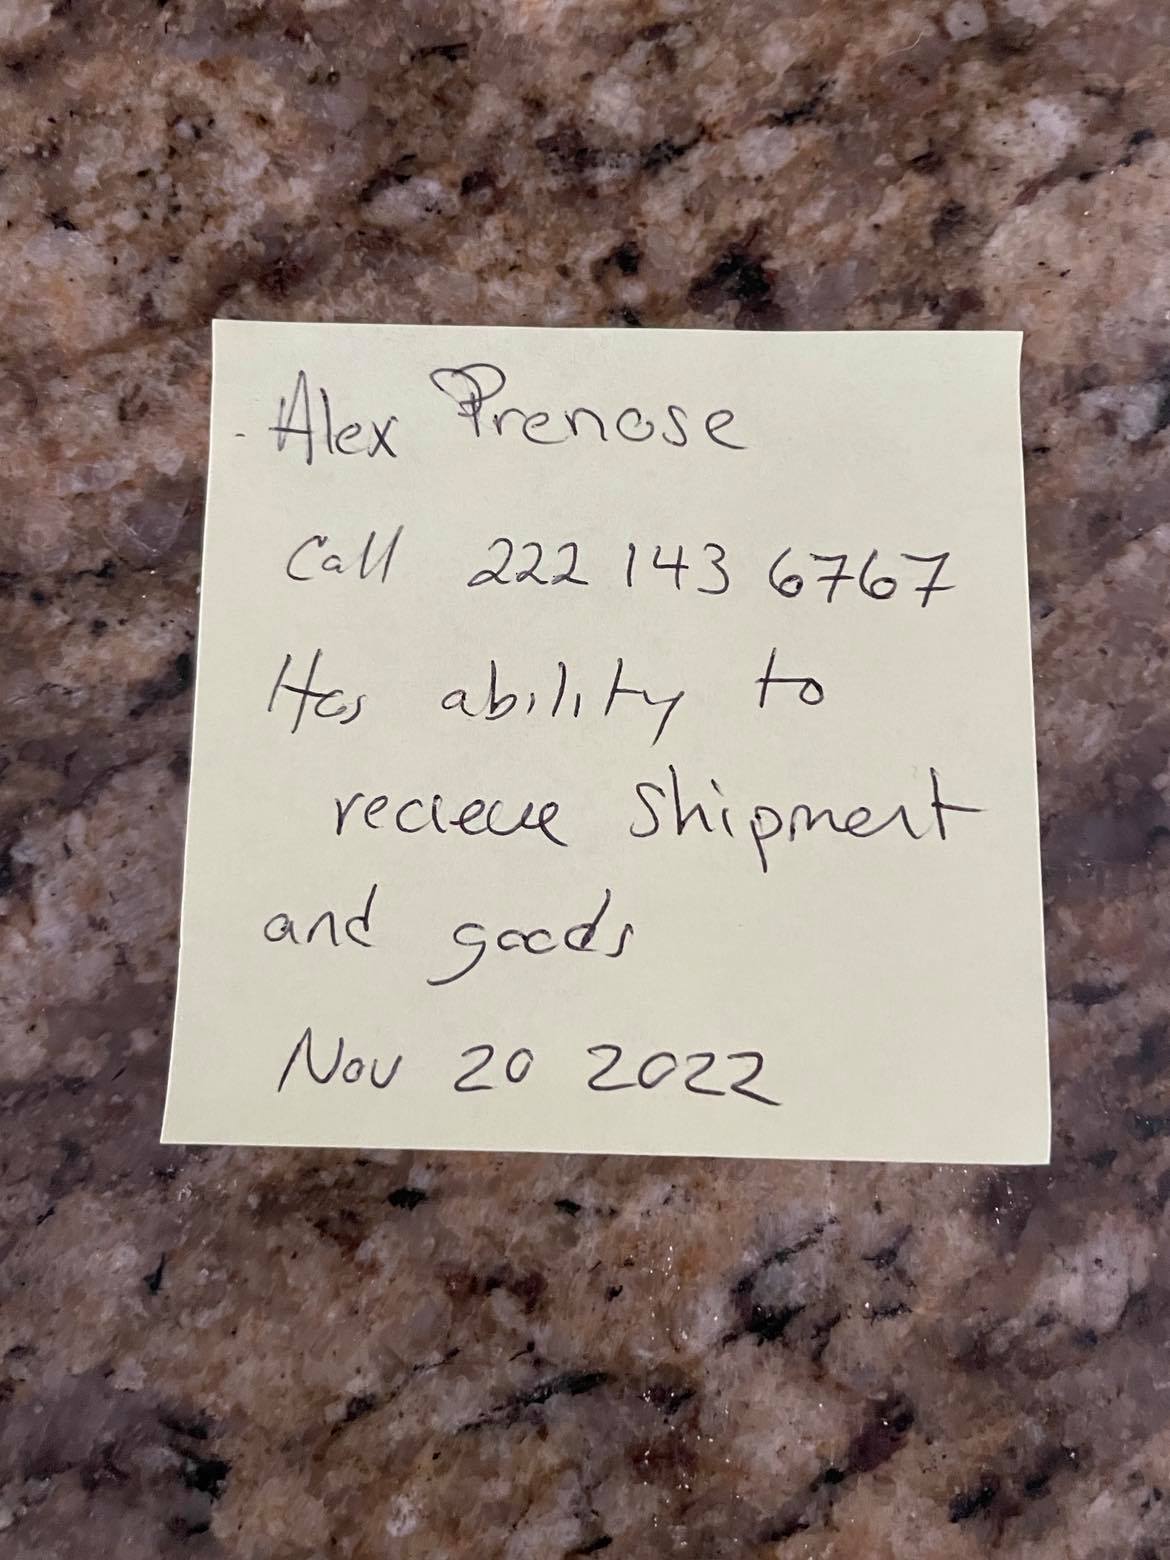 - Alex Prenose
Call 222 143 6767
Has ability to
recieve Shipment
and goods
Nov 20 2022